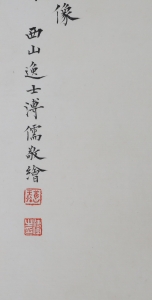 像
西山逸士溥儒敬繪